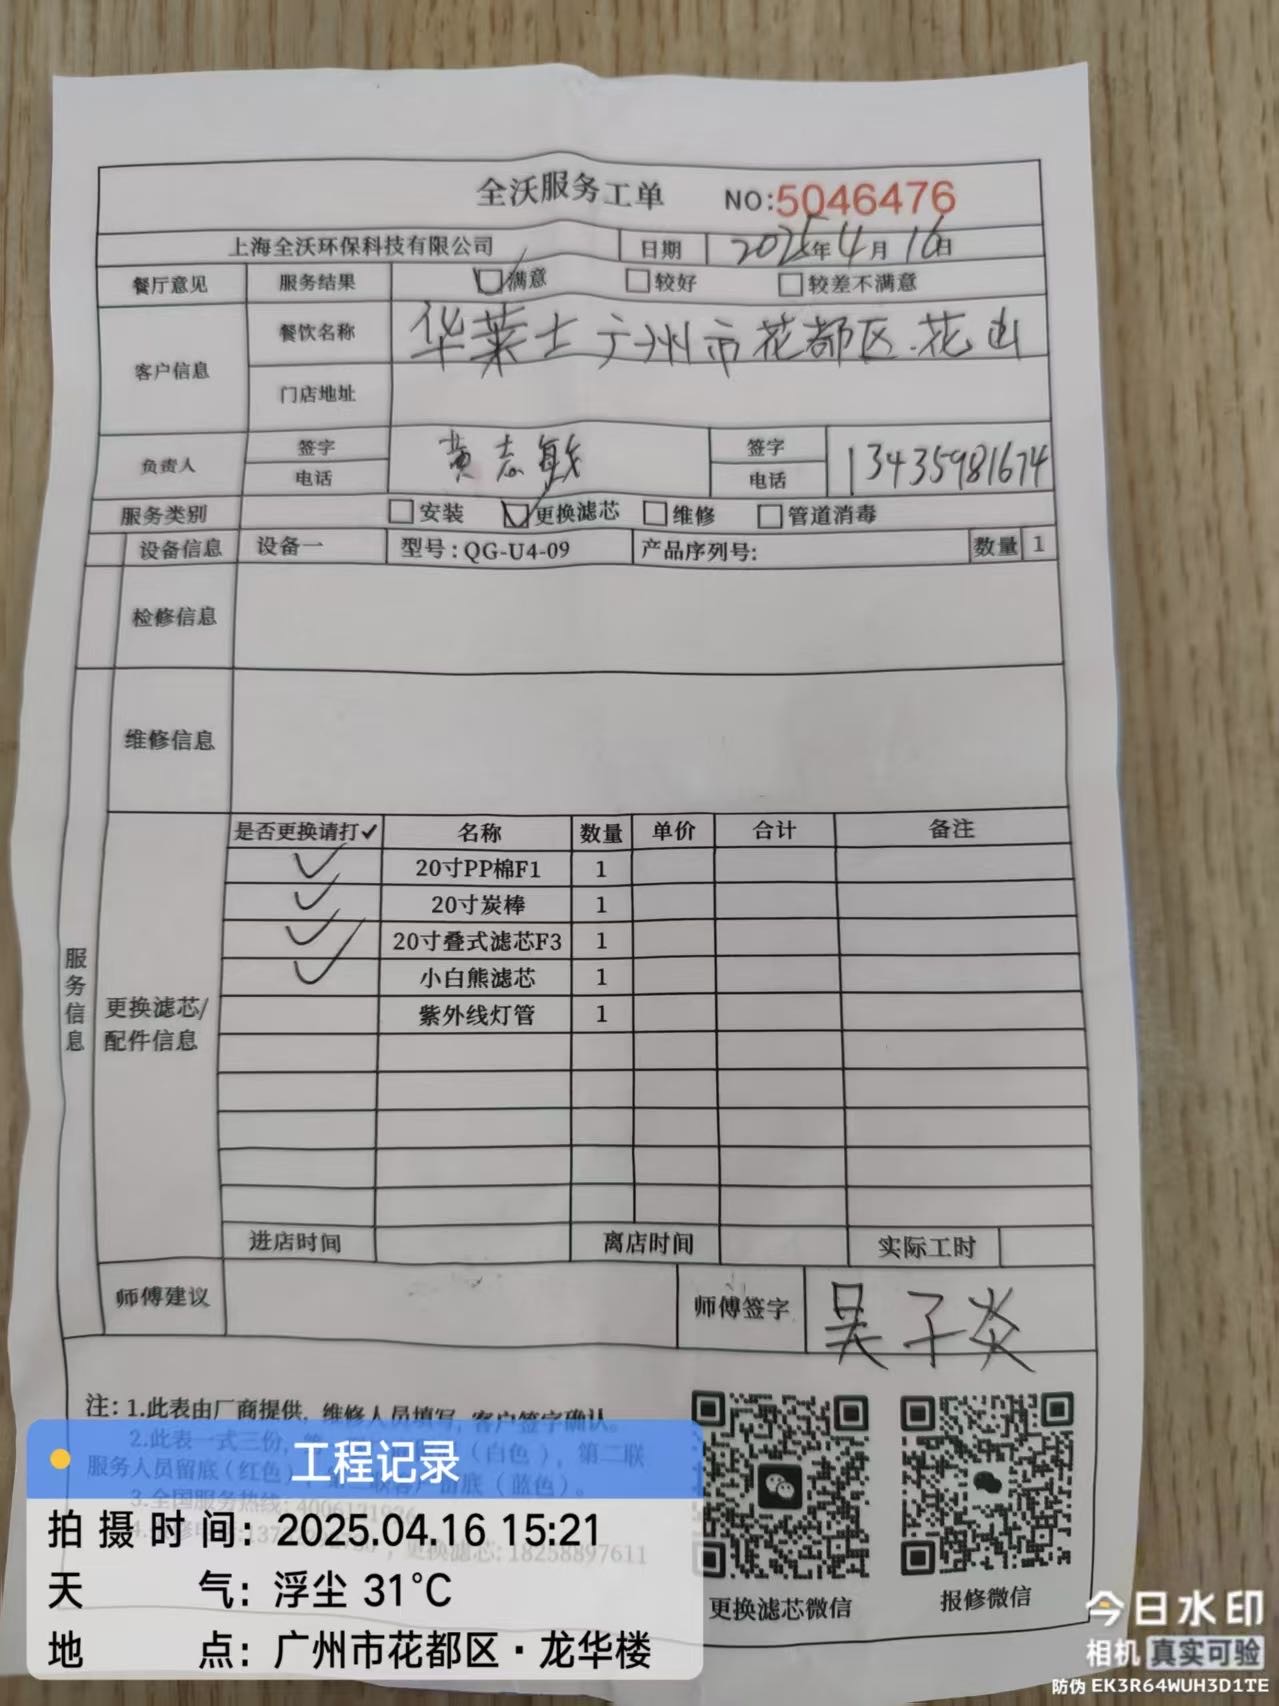 全沃服务工单 NO:5046476
上海全沃环保科技有限公司 日期 2025年4月16日
餐厅意见 服务结果 满意 较好 较差不满意
客户信息 餐饮名称 华莱士广州市花都区.花山
门店地址
负责人 签字 电话 黄志敏 签字 电话 13435981674
服务类别 安装 更换滤芯 维修 管道消毒
设备信息 设备一 型号:QG-U4-09 产品序列号: 数量 1
检修信息
维修信息
服务信息
更换滤芯/配件信息
是否更换请打✓ 名称 数量 单价 合计 备注
✓ 20寸PP棉F1 1
✓ 20寸炭棒 1
✓ 20寸叠式滤芯F3 1
✓ 小白熊滤芯 1
紫外线灯管 1
进店时间 离店时间 实际工时
师傅建议 师傅签字 吴子炎
注:1.此表由厂商提供,维修人员填写,客户签字确认。
2.此表一式三份, (白色),第二联
服务人员留底(红色) 留底(蓝色)。
3.全国服务热线:
更换滤芯:18258897611
更换滤芯微信 报修微信
工程记录
拍摄时间: 2025.04.16 15:21
天气: 浮尘 31℃
地点: 广州市花都区·龙华楼
今日水印
相机 真实可验
防伪 EK3R64WUH3D1TE